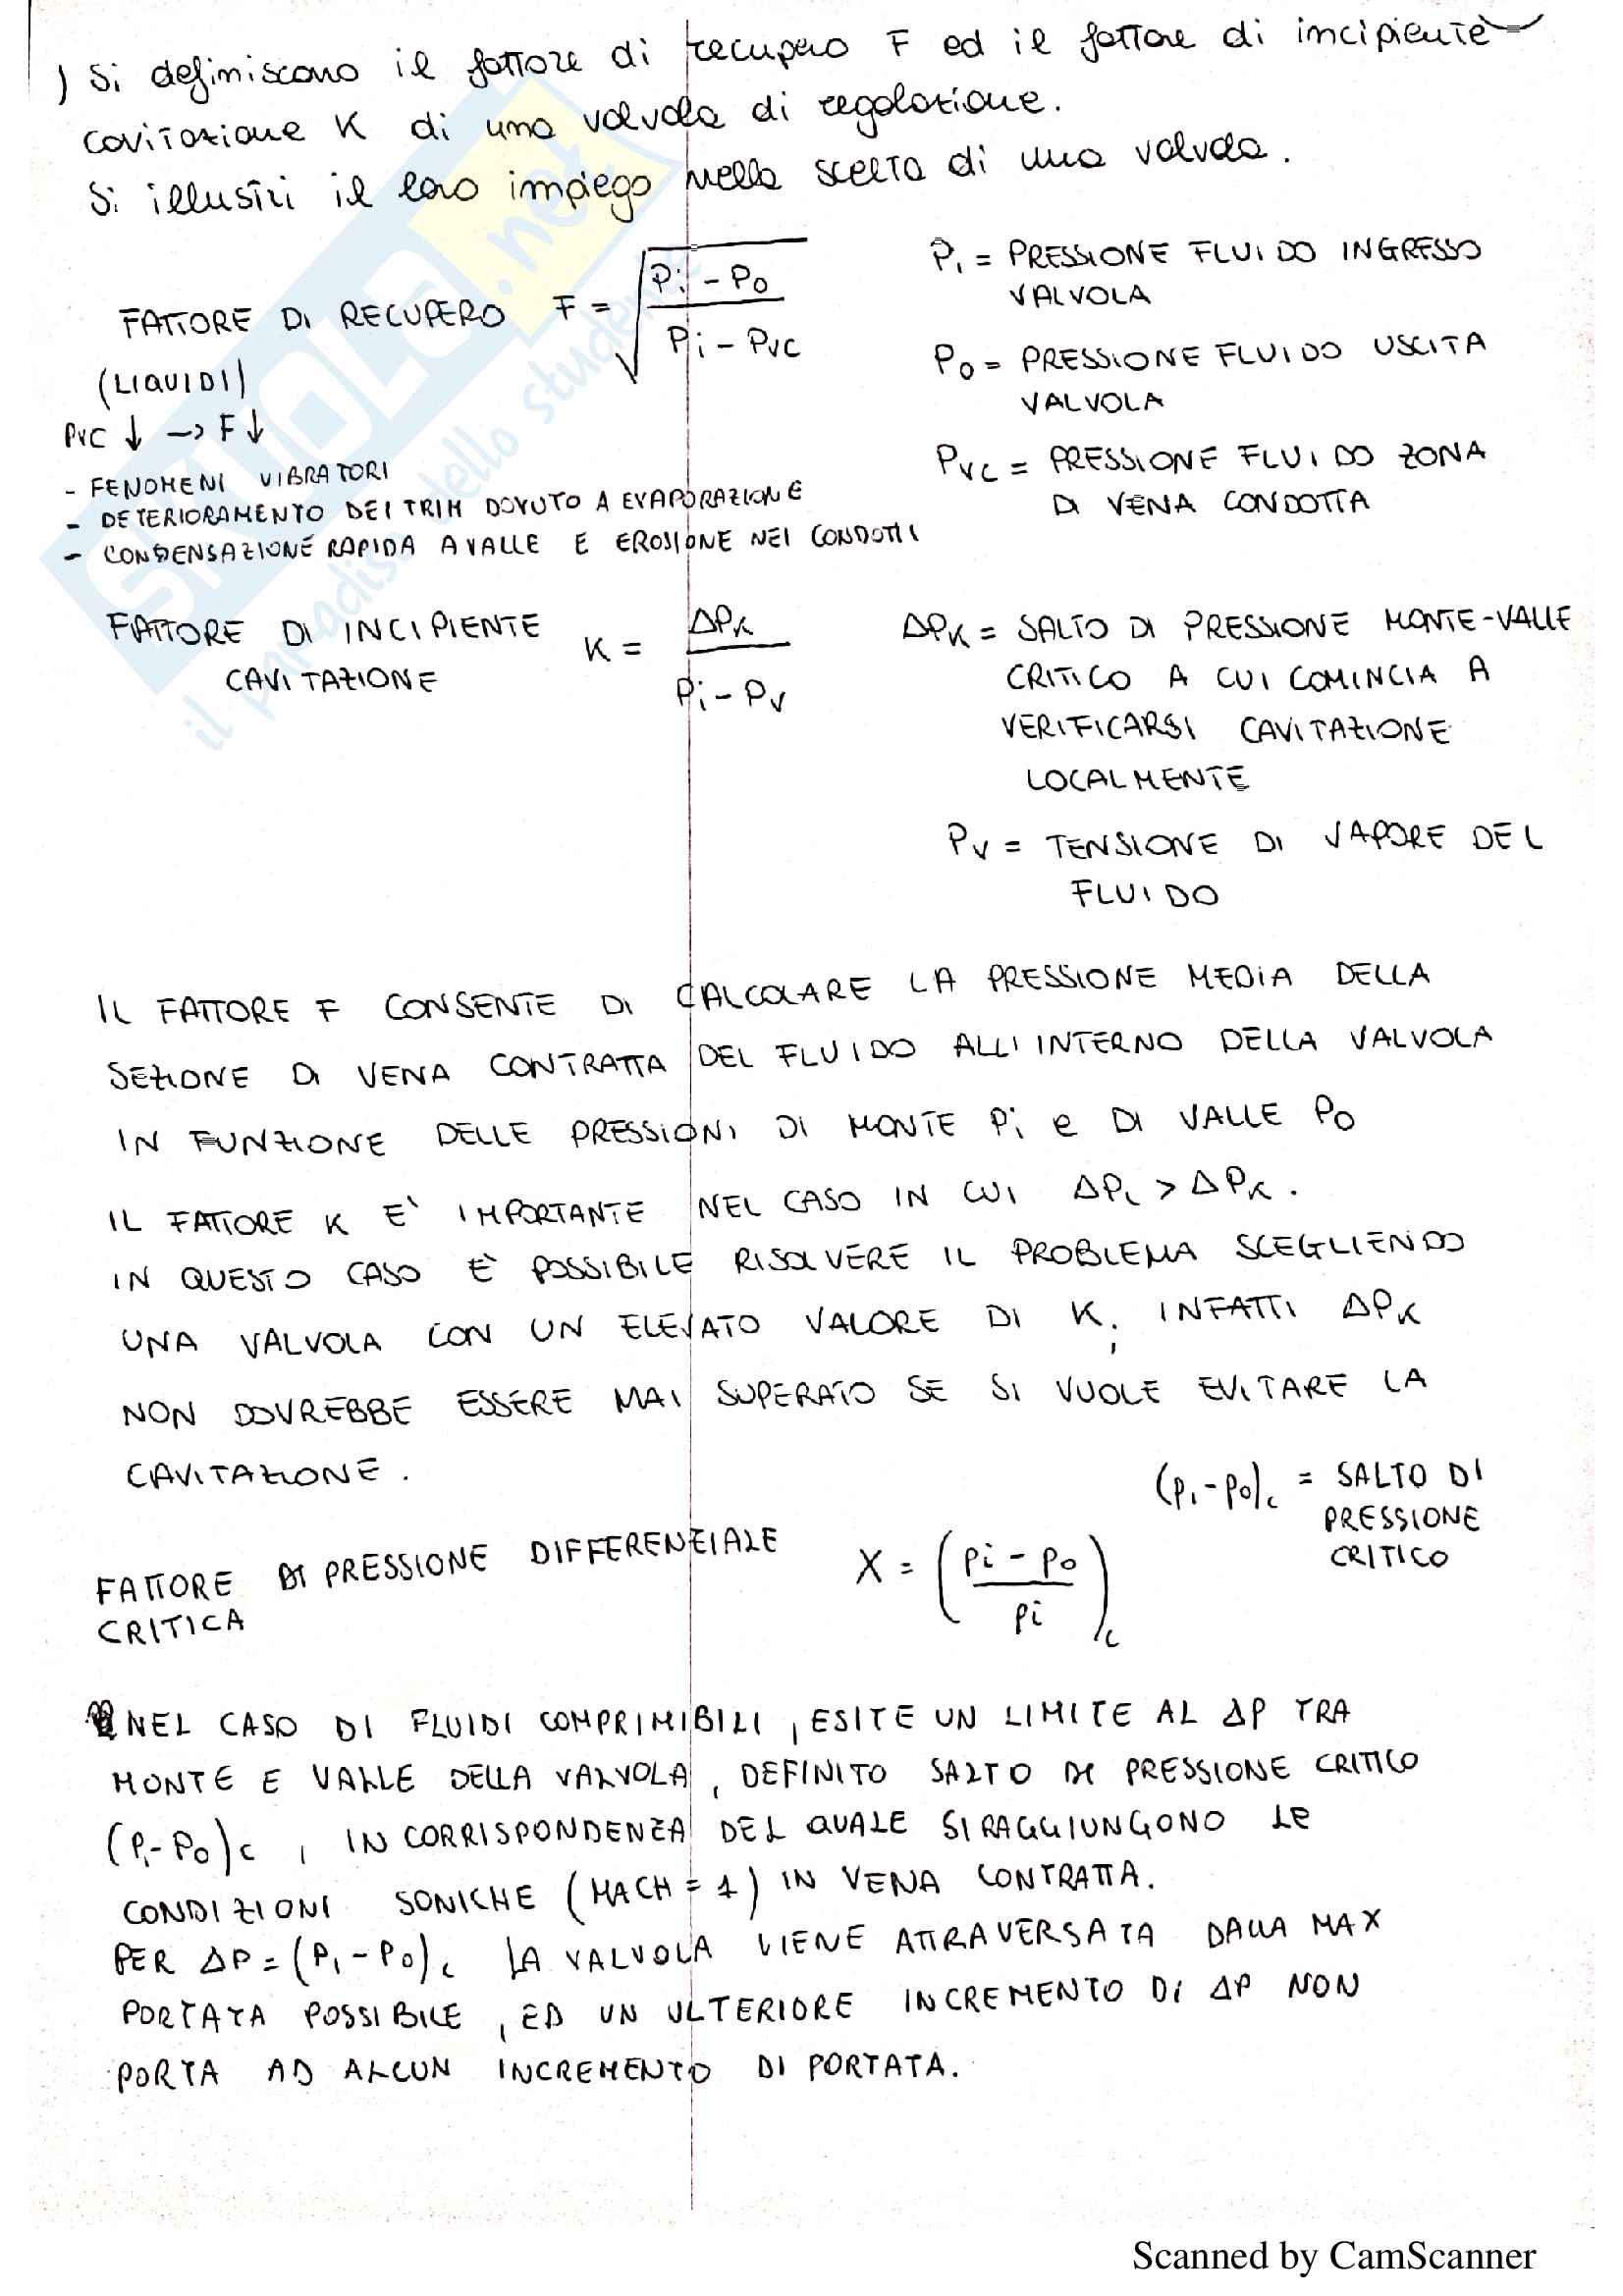 ) Si definiscono il fattore di recupero F ed il fattore di incipiente
cavitazione K di una valvola di regolazione.
Si illustri il loro impiego nella scelta di una valvola.
FATTORE DI RECUPERO F = √((Pi - Po)/(Pi - Pvc))
(LIQUIDI)
Pvc ↓ -> F ↓
- FENOMENI VIBRATORI
- DETERIORAMENTO DEI TRIM DOVUTO A EVAPORAZIONE
- CONDENSAZIONE RAPIDA A VALLE E EROSIONE NEI CONDOTTI
Pi = PRESSIONE FLUIDO INGRESSO
VALVOLA
Po = PRESSIONE FLUIDO USCITA
VALVOLA
Pvc = PRESSIONE FLUIDO ZONA
DI VENA CONDOTTA
FATTORE DI INCIPIENTE
CAVITAZIONE
K = ΔPK / (Pi - Pv)
ΔPK = SALTO DI PRESSIONE MONTE-VALLE
CRITICO A CUI COMINCIA A
VERIFICARSI CAVITAZIONE
LOCALMENTE
Pv = TENSIONE DI VAPORE DEL
FLUIDO
IL FATTORE F CONSENTE DI CALCOLARE LA PRESSIONE MEDIA DELLA
SEZIONE DI VENA CONTRATTA DEL FLUIDO ALL'INTERNO DELLA VALVOLA
IN FUNZIONE DELLE PRESSIONI DI MONTE Pi e DI VALLE Po
IL FATTORE K E' IMPORTANTE NEL CASO IN CUI ΔPL > ΔPK.
IN QUESTO CASO È POSSIBILE RISOLVERE IL PROBLEMA SCEGLIENDO
UNA VALVOLA CON UN ELEVATO VALORE DI K; INFATTI ΔPK
NON DOVREBBE ESSERE MAI SUPERATO SE SI VUOLE EVITARE LA
CAVITAZIONE.
FATTORE DI PRESSIONE DIFFERENZIALE
CRITICA
X = ((pi - po)/pi)c
(pi - po)c = SALTO DI
PRESSIONE
CRITICO
NEL CASO DI FLUIDI COMPRIMIBILI, ESITE UN LIMITE AL ΔP TRA
MONTE E VALLE DELLA VALVOLA, DEFINITO SALTO DI PRESSIONE CRITICO
(Pi - Po)c, IN CORRISPONDENZA DEL QUALE SI RAGGIUNGONO LE
CONDIZIONI SONICHE (MACH = 1) IN VENA CONTRATTA.
PER ΔP = (Pi - Po)c LA VALVOLA VIENE ATTRAVERSATA DALLA MAX
PORTATA POSSIBILE, ED UN ULTERIORE INCREMENTO DI ΔP NON
PORTA AD ALCUN INCREMENTO DI PORTATA.
SKUOLA.net
il paradiso dello studente
Scanned by CamScanner